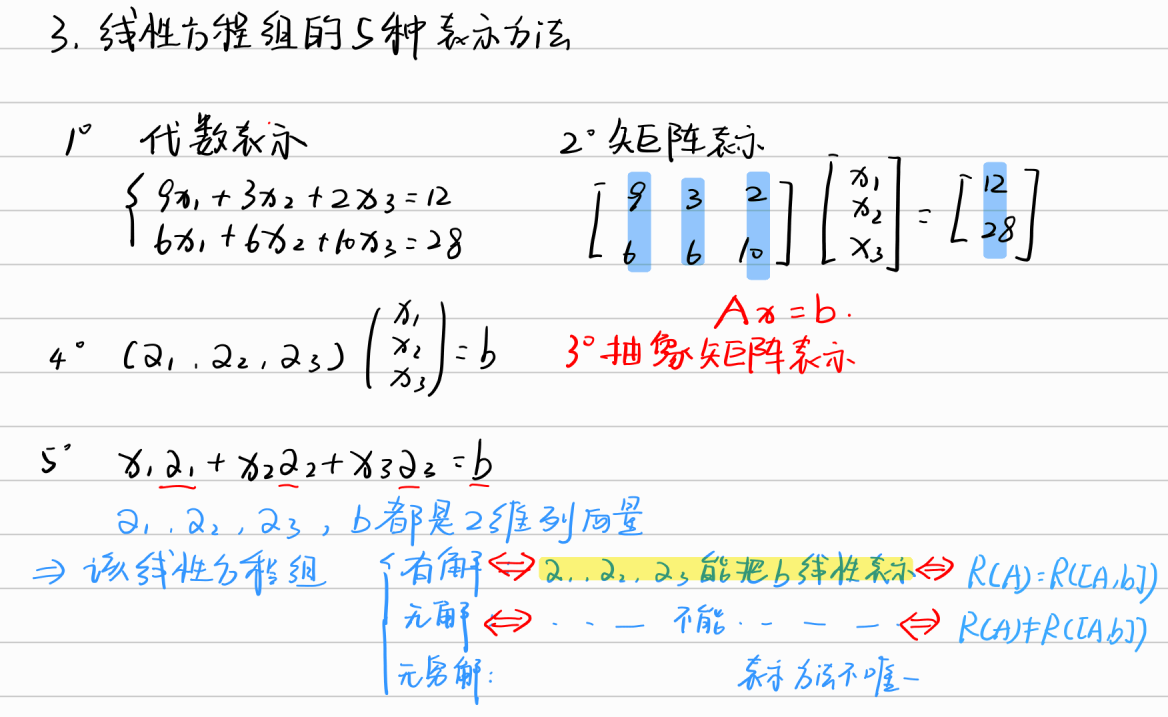 3. 线性方程组的5种表示方法
1° 代数表示
{ 9x₁ + 3x₂ + 2x₃ = 12
6x₁ + 6x₂ + 10x₃ = 28
2° 矩阵表示
[ 9 3 2 ] [ x₁ ] = [ 12 ]
[ 6 6 10 ] [ x₂ ] [ 28 ]
[ x₃ ]
Ax = b.
3° 抽象矩阵表示
4° (α₁, α₂, α₃) ( x₁ x₂ x₃ ) = b
5° x₁α₁ + x₂α₂ + x₃α₃ = b
α₁, α₂, α₃, b都是2维列向量
⇒ 该线性方程组 { 有解 ⇔ α₁, α₂, α₃ 能把b线性表示 ⇔ R(A) = R([A,b])
无解 ⇔ · · — 不能 · · — — ⇔ R(A) ≠ R([A,b])
无穷解: 表示方法不唯一